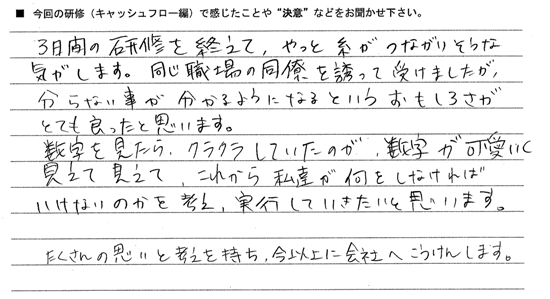 ■ 今回の研修（キャッシュフロー編）で感じたことや“決意”などをお聞かせ下さい。
3日間の研修を終えて、やっと糸がつながりそうな
気がします。同じ職場の同僚を誘って受けましたが、
分らない事が分かるようになるというおもしろさが
とても良ったと思います。
数字を見たら、クラクラしていたのが、数字が可愛いく
見えて見えて、これから私達が何をしなければ
いけないのかを考え、実行していきたいと思います。
たくさんの思いと考えを持ち、今以上に会社へこうけんします。